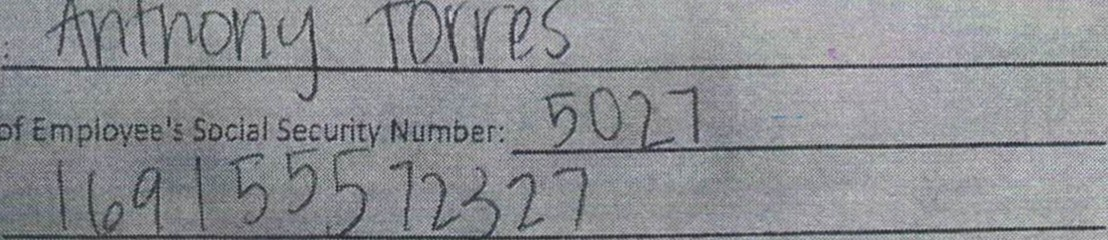 : Anthony Torres
of Employee's Social Security Number: 5027
169155572327